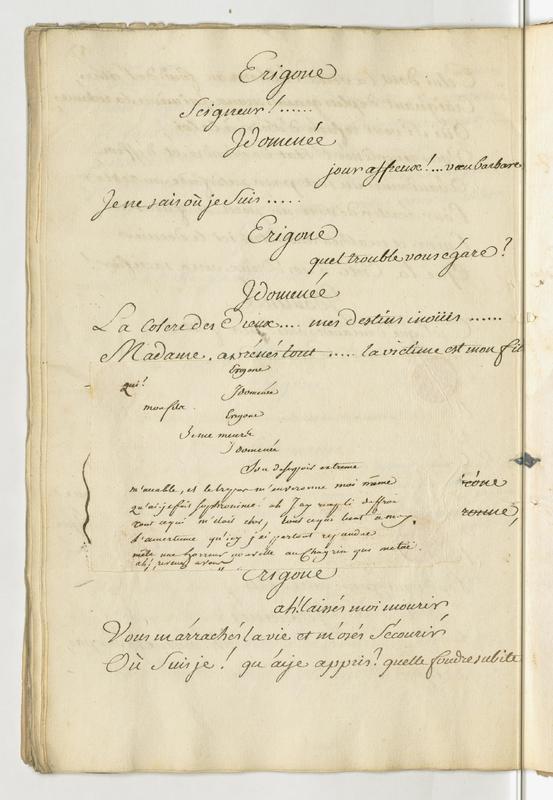 Erigone
Seigneur!......
Jdomenée
jour affreux!... vœu barbare
Je ne sais où je suis.....
Erigone
quel trouble vous égare?
Jdomenée
La colere des Dieux.... mes destins inoüis......
Madame, arrêtés tout..... la victime est mon fil
Erigone
qui!
Jdomenée
mon fils.
Erigone
Je me meurs
Jdomenée
Son desespoir extreme
m'accable, et le trepas m'environne moi même
qu'ai je fait sophronime. ah
tout ce qui m'etoit cher, tous ceux
d'amertume qu'icy j'ai partout repandue
mele une horreur nouvelle au chagrin qui me tüe.
ah! revenez a vous
rône
ronne,
Erigone
ah! laissés moi mourir
Vous m'arrachés la vie et m'osés sécourir
Où suis je! qu'ai je appris? quelle foudre subite